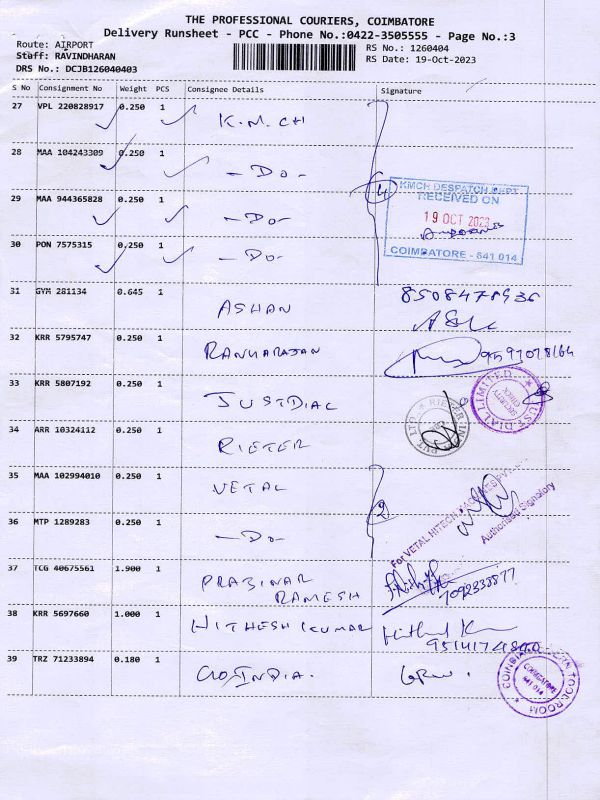 THE PROFESSIONAL COURIERS, COIMBATORE
Delivery Runsheet - PCC - Phone No.:0422-3505555 - Page No.:3
Route: AIRPORT
Staff: RAVINDHARAN
DRS No.: DCJB126040403
RS No.: 1260404
RS Date: 19-Oct-2023
S No Consignment No Weight PCS Consignee Details Signature
27 VPL 220828917 0.250 1 K.M.CH
28 MAA 104243309 0.250 1 - Do -
29 MAA 944365828 0.250 1 - Do -
30 PON 7575315 0.250 1 - Do -
4
KMCH DESPATCH DEPT
RECEIVED ON
19 OCT 2023
COIMBATORE - 641 014
31 GYM 281134 0.645 1 ASHAN 8508478936
32 KRR 5795747 0.250 1 RANKARAJAN
33 KRR 5807192 0.250 1 JUSTDIAL
JUST DIAL LIMITED
SECURITY CHECK
34 ARR 10324112 0.250 1 RIETER
35 MAA 102994010 0.250 1 VETAL
36 MTP 1289283 0.250 1 - Do -
2
For VETAL HITECH
Authorised Signatory
37 TCG 40675561 1.900 1 PRABINAR RAMESH
38 KRR 5697660 1.000 1 HITHESH KUMAR
39 TRZ 71233894 0.180 1
TOOL ROOM
COIMBATORE
641 014